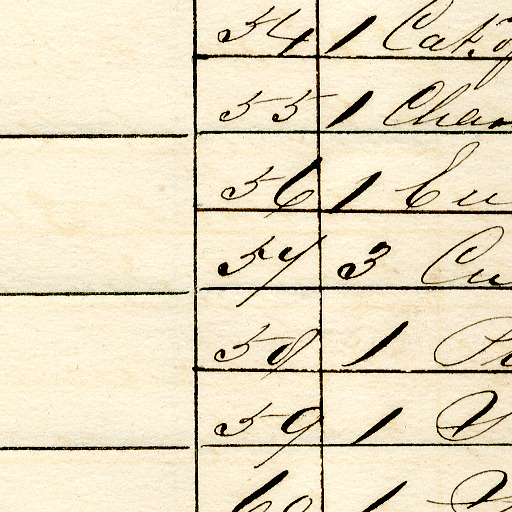 54 1
55 1 Cha
56 1 Cu
57 3 Cu
58 1
59 1
60 1